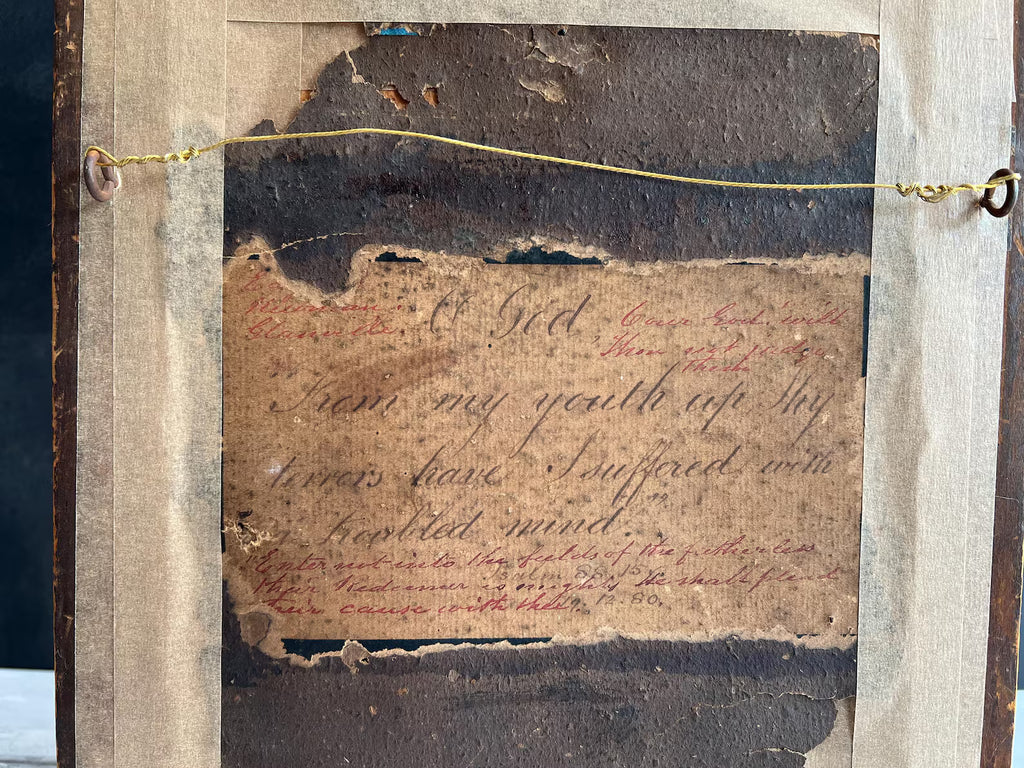 O God
O our God! wilt
thou not judge
them
"From my youth up thy
terrors have I suffered with
a troubled mind."
Enter not into the fields of the fatherless
their Redeemer is mighty He shall plead
Psalm 88. 15.
their cause with thee
9. 12. 80.